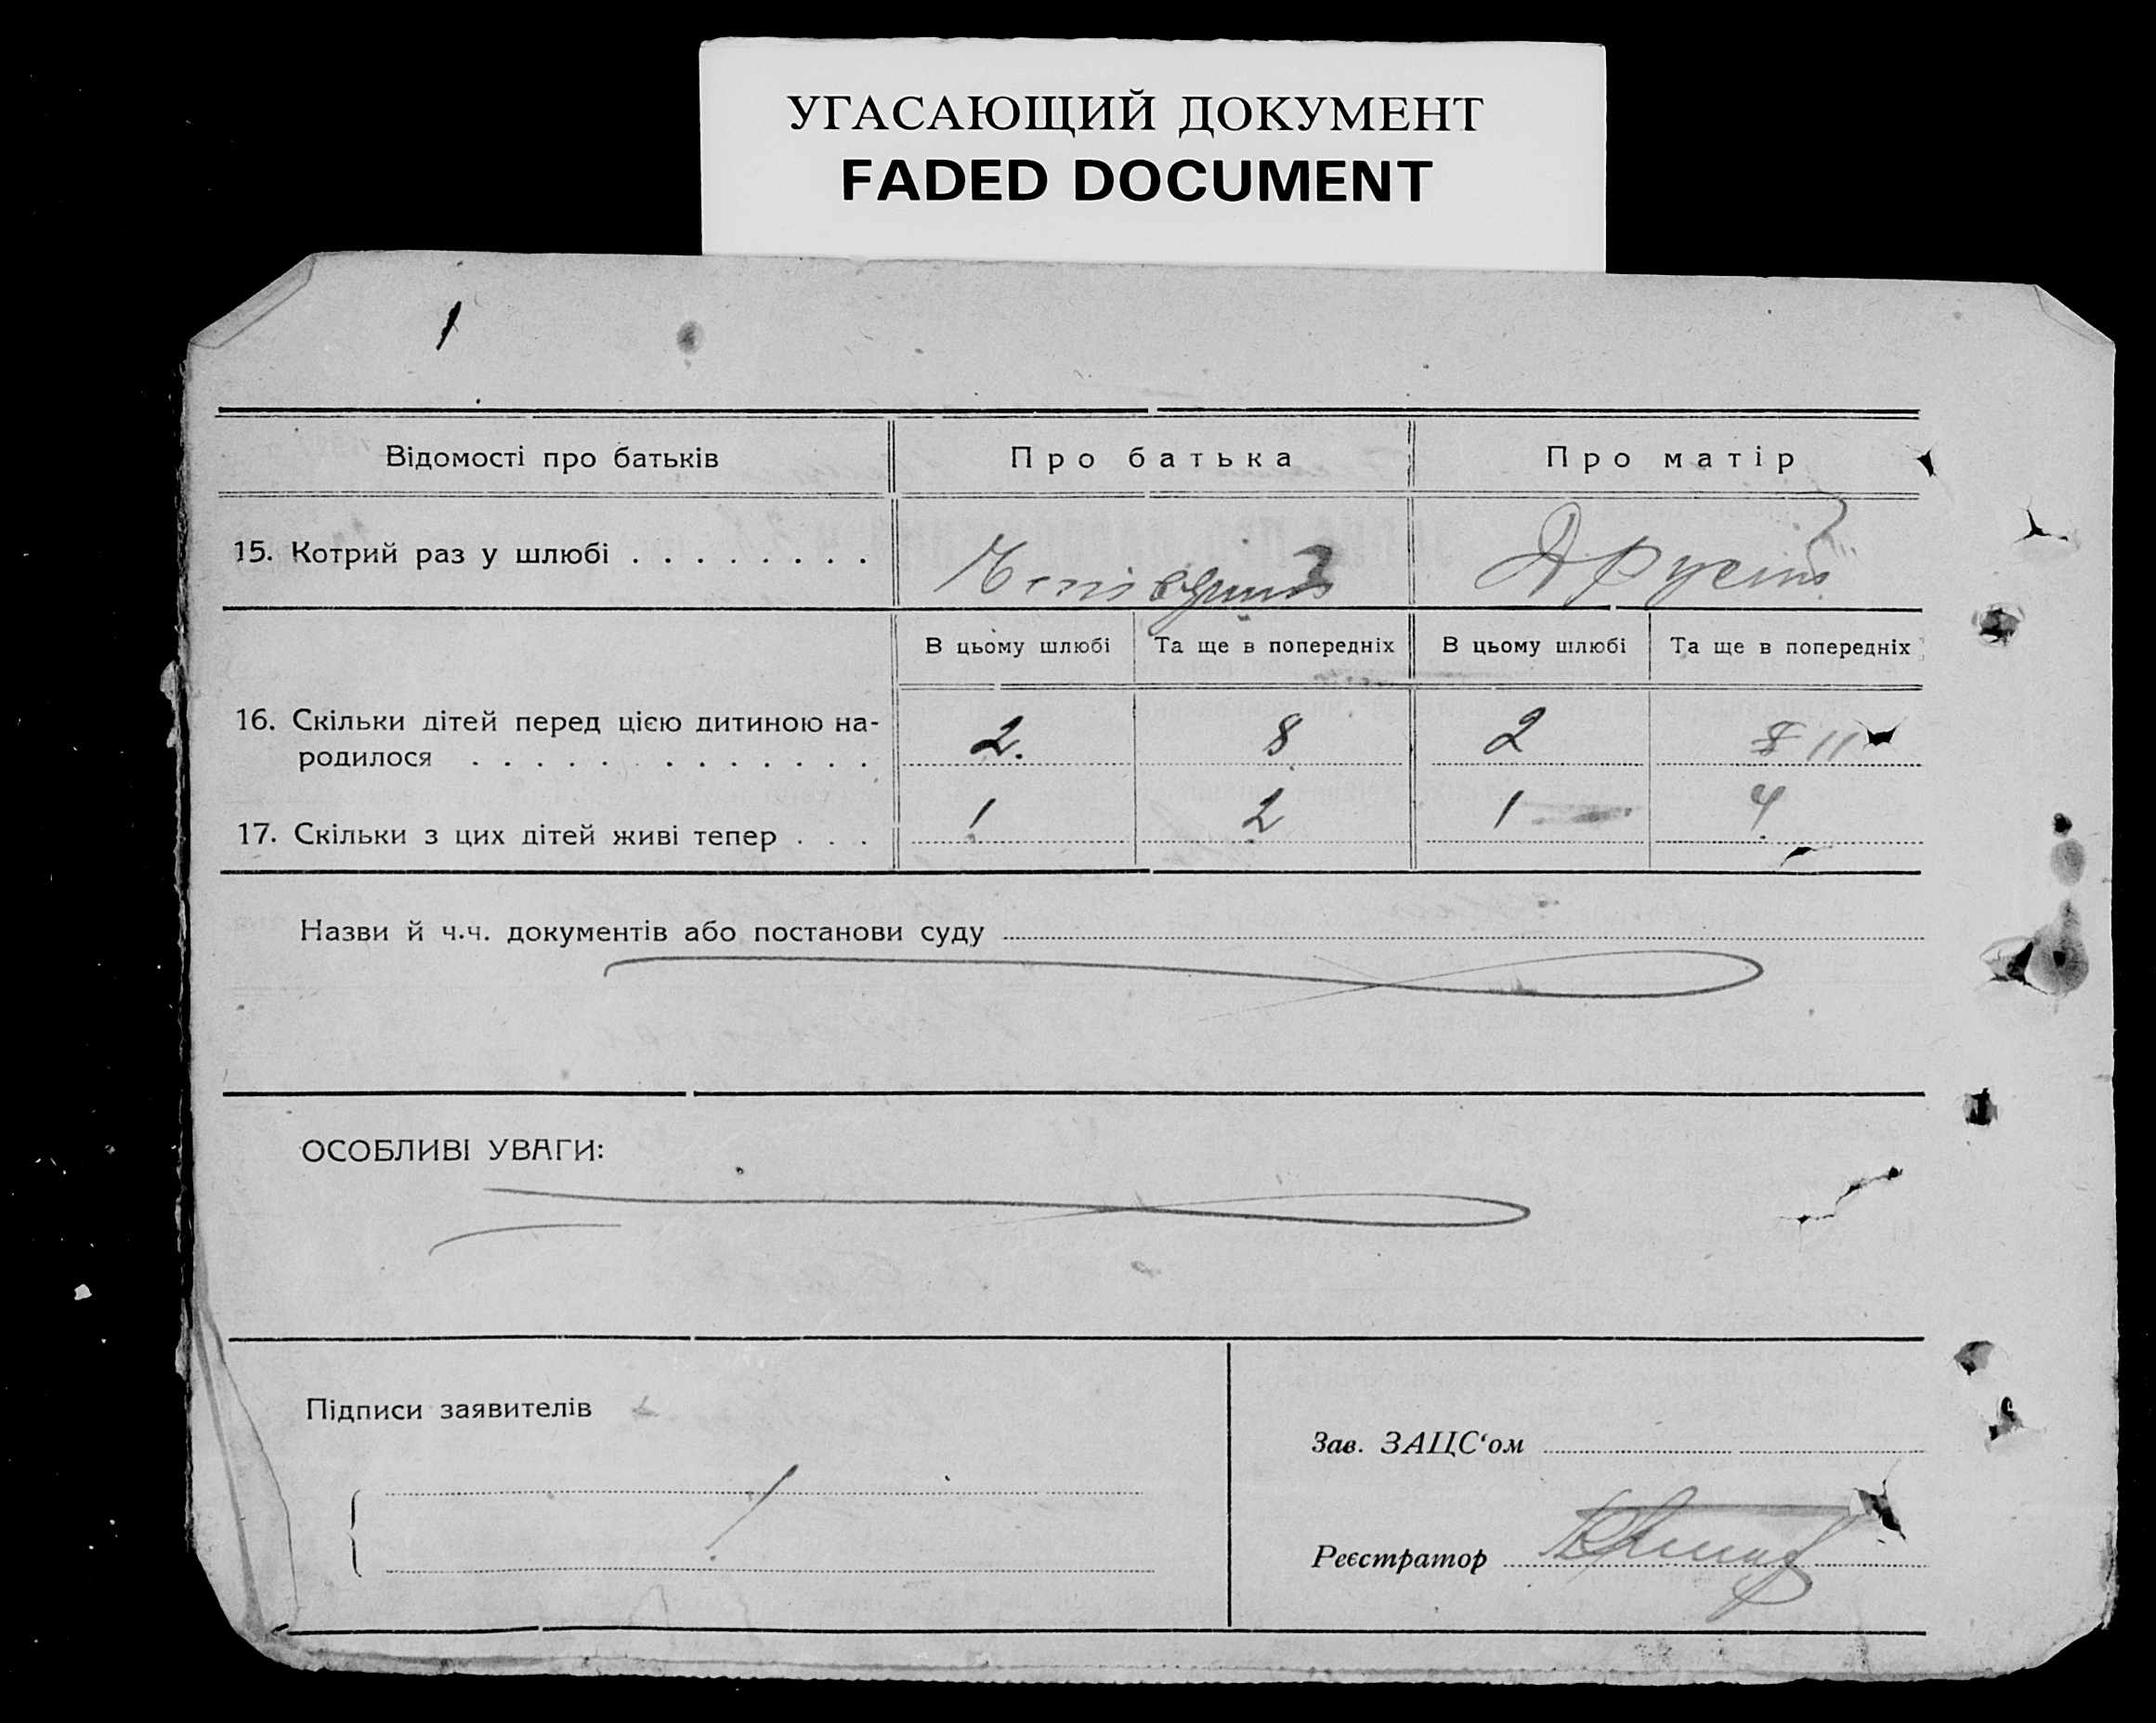 УГАСАЮЩИЙ ДОКУМЕНТ
FADED DOCUMENT
Відомості про батьків
Про батька
Про матір
15. Котрий раз у шлюбі . . . . . . . .
В цьому шлюбі
Та ще в попередніх
В цьому шлюбі
Та ще в попередніх
16. Скільки дітей перед цією дитиною на-
родилося . . . . . . . . . . . . . .
2.
8
2
8 11
17. Скільки з цих дітей живі тепер . . .
1
2
1
4
Назви й ч.ч. документів або постанови суду
ОСОБЛИВІ УВАГИ:
Підписи заявителів
Зав. ЗАЦС‘ом
Реєстратор